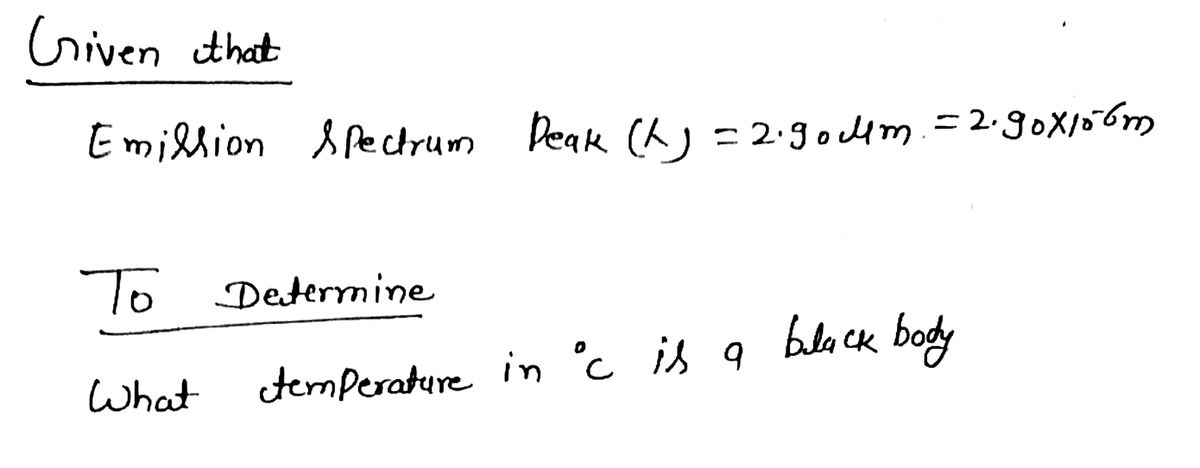 Given that
Emission Spectrum Peak (λ) = 2.90 μm. = 2.90X10-6m
To Determine
What temperature in °c is a black body